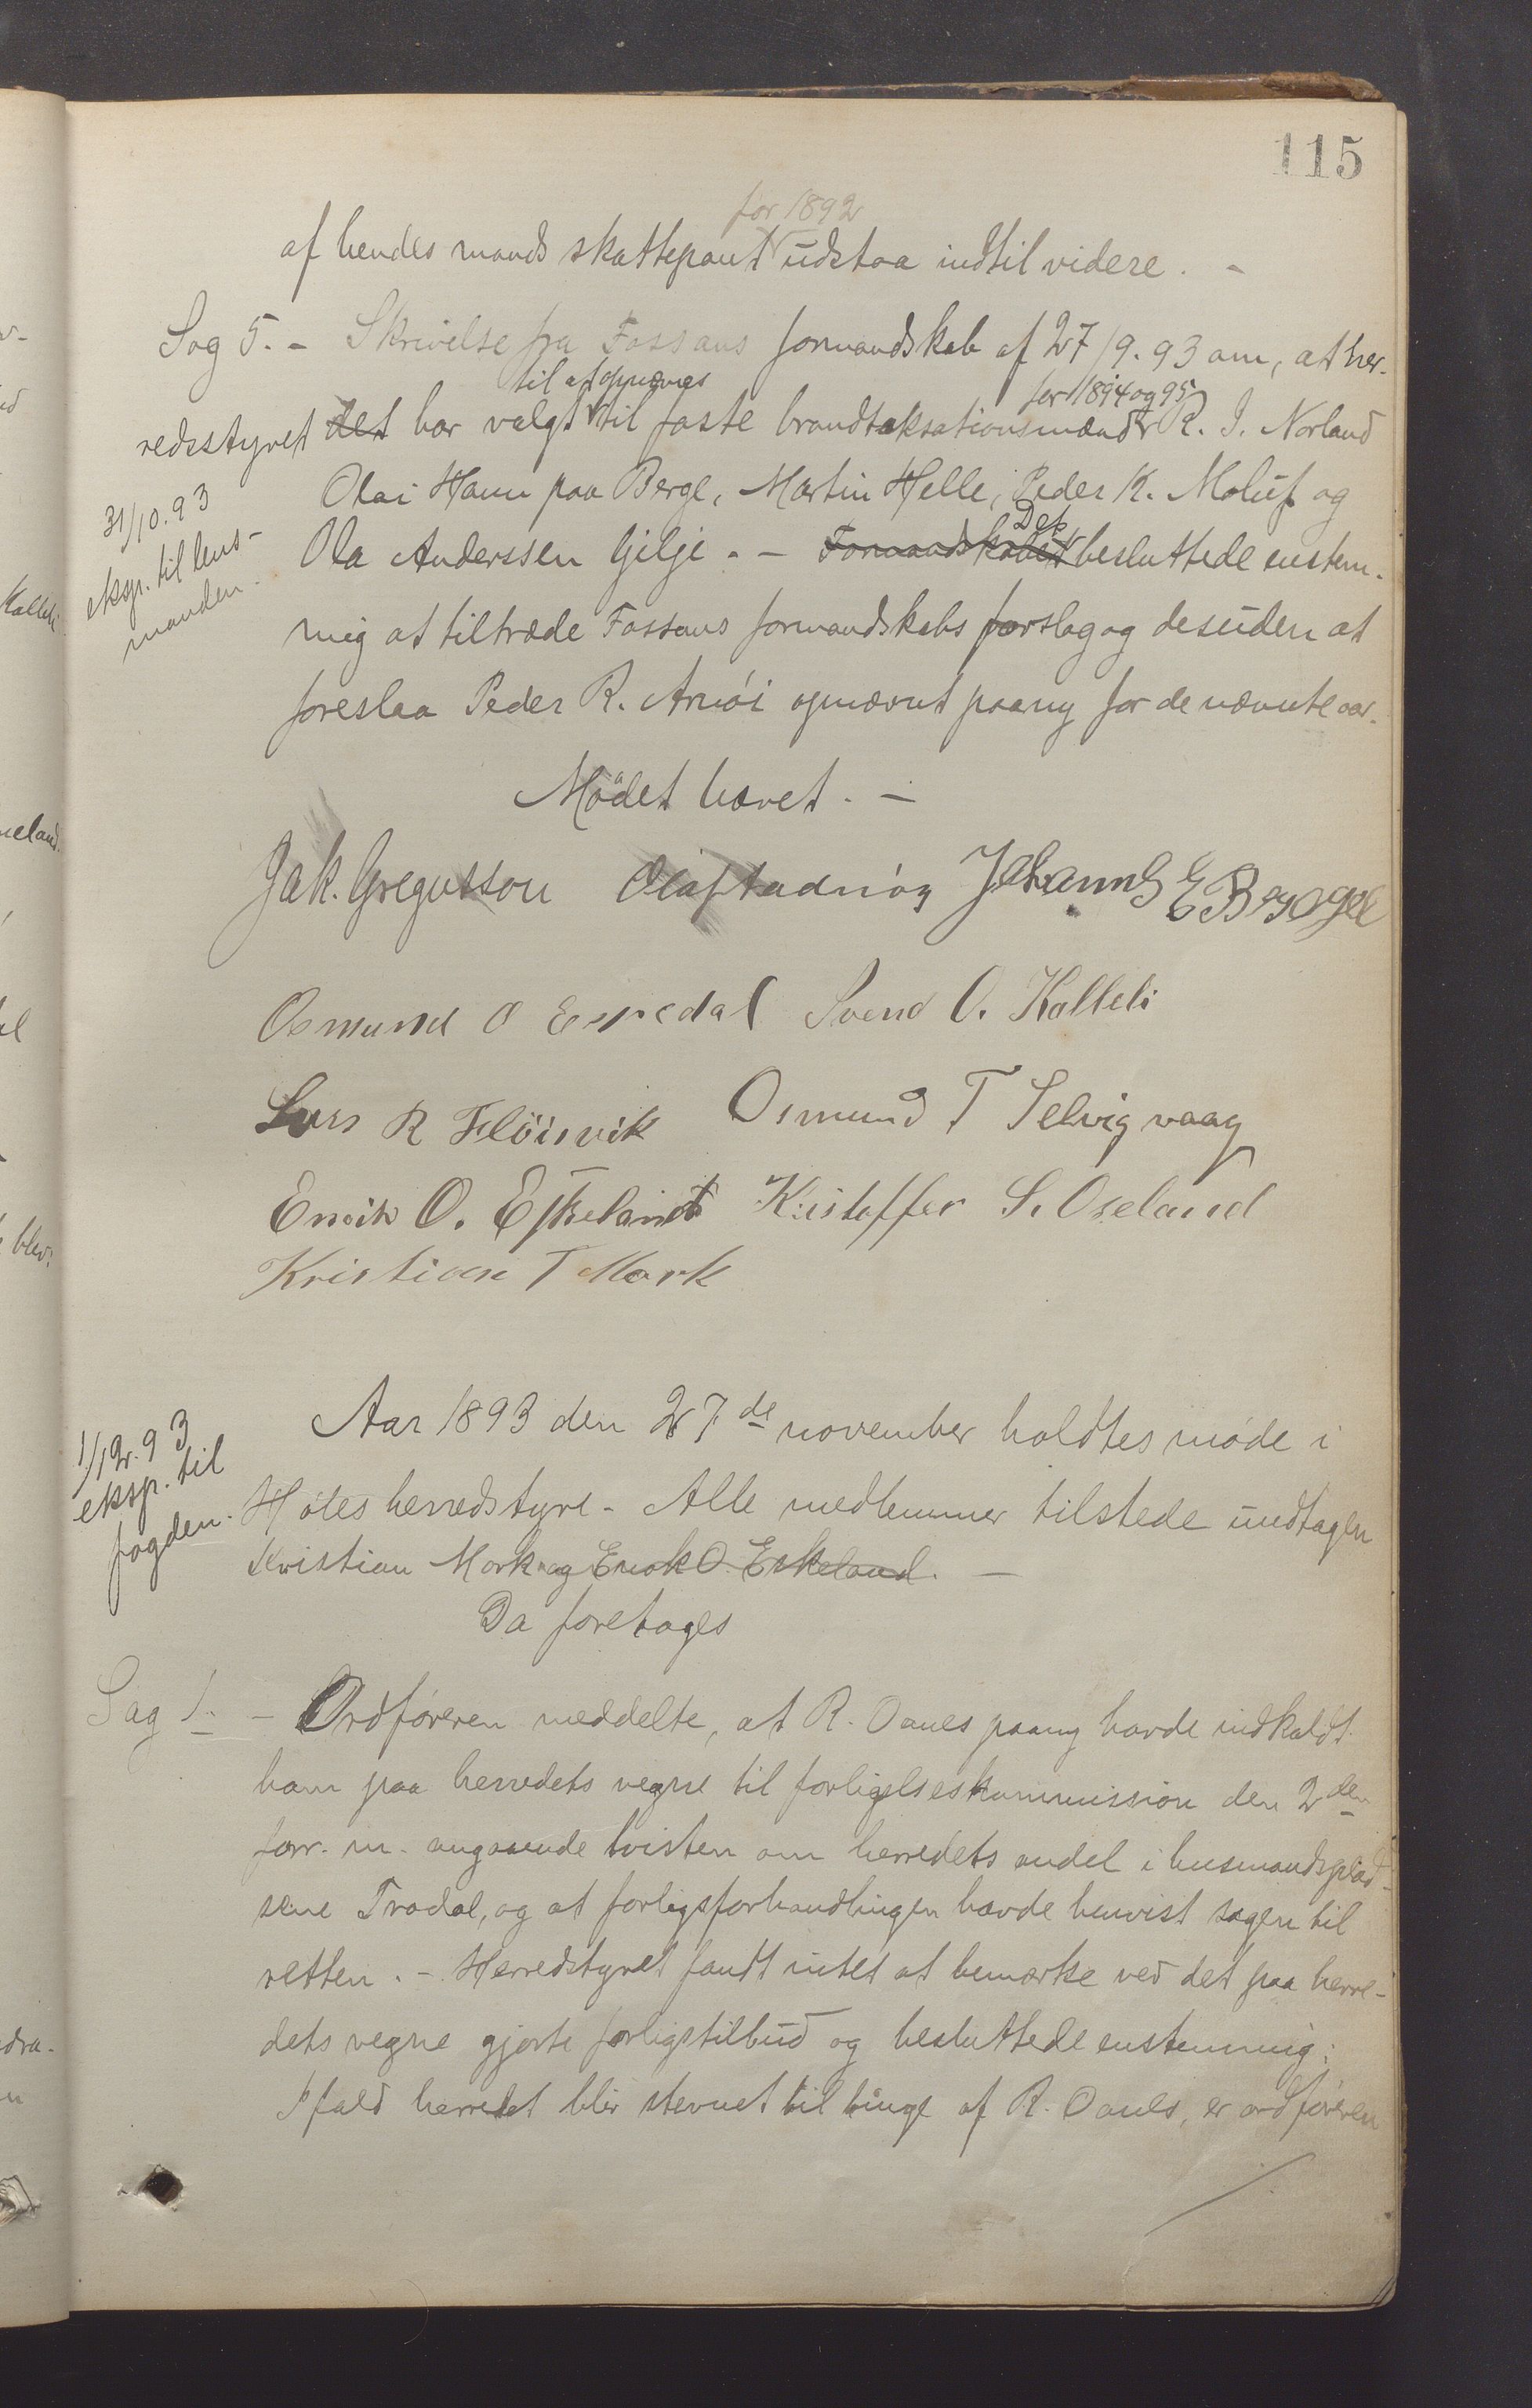 115
for 1892
af hendes mands skattepant udstaa indtil videre. -
Sag 5. - Skrivelse fra Fossans formandskab af 27/9.93 om, at her-
til at opnævnes for 1894 og 95
redsstyret det har valgt til faste brandtaksationsmænd R. I. Norland
Olai Hann paa Berge, Martin Helle, Peder K. Moluf og
31/10.93
eksp. til lens-
manden.
Det
Ola Anderssen Gilje. - Formandskabet besluttede enstem-
mig at tiltræde Fossans formandskabs forslag og desuden at
foreslaa Peder R. Arnöi opnævnt paany for de nævnte aar.
Mödet hævet. -
Jak. Gregusson Olaf Ladnög Johannes E Bergsgel
Osmund O Espedal Svend O. Kalleli
Lars R Flöisvik Osmund T Selvigvaag
Enok O. Eskeland Kristoffer S. Oseland
Kristian T Mork
1/12.93
eksp. til
fogden.
Aar 1893 den 27de november holdtes möde i
Höles herredstyre - Alle medlemmer tilstede undtagen
Kristian Mork og Enok O. Eskeland. -
Da foretages
Sag 1. - Ordföreren meddelte, at R. Oanes paany havde indkaldt
ham paa herredets vegne til forligelseskommission den 2den
forr. m. angaaende tvisten om herredets andel i husmandsplad-
sene Tradal, og at forligsforhandlingen havde henvist sagen til
retten. - Herredstyret fandt intet at bemærke ved det paa herre-
dets vegne gjorte forligstilbud og besluttede enstemmig:
Ifald herredet blir stevnet til tinge af R. Oanes, er ordföreren